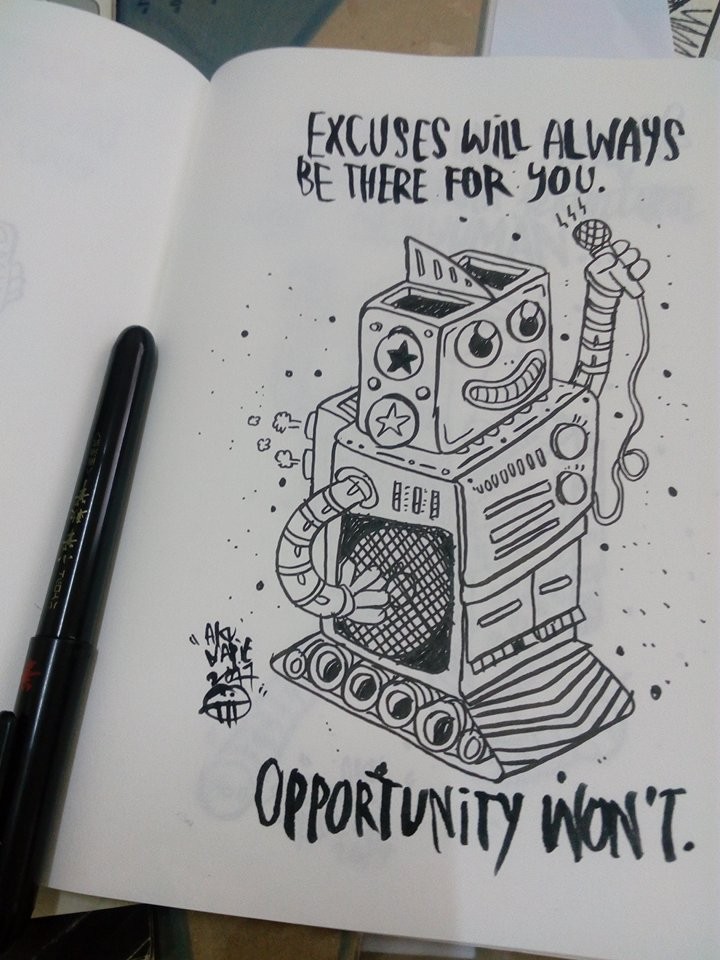 EXCUSES WILL ALWAYS
BE THERE FOR YOU.
OPPORTUNITY WON'T.